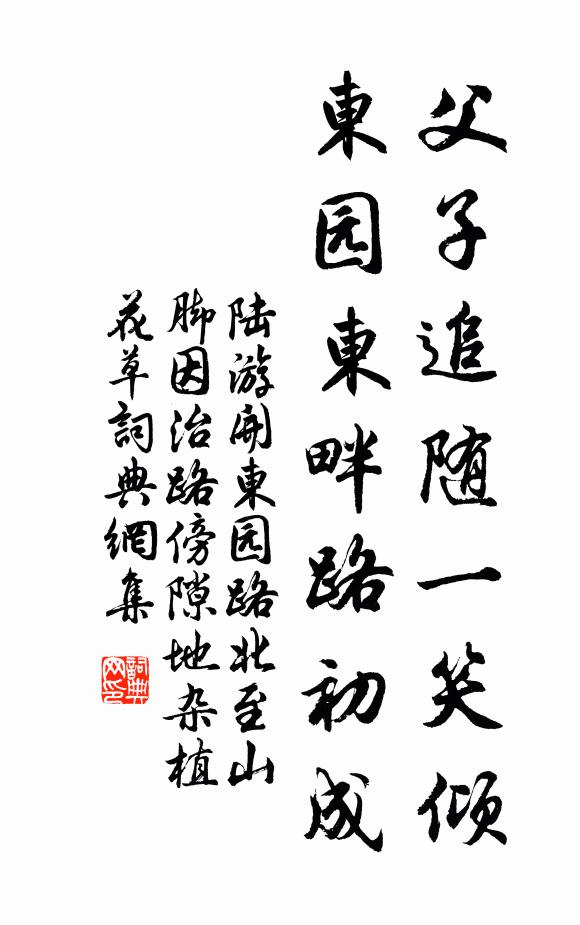 父子追随一笑倾
東园東畔路初成
陆游開東园路北至山
脚因治路傍隙地杂植
花草詞典網集
詞典网印